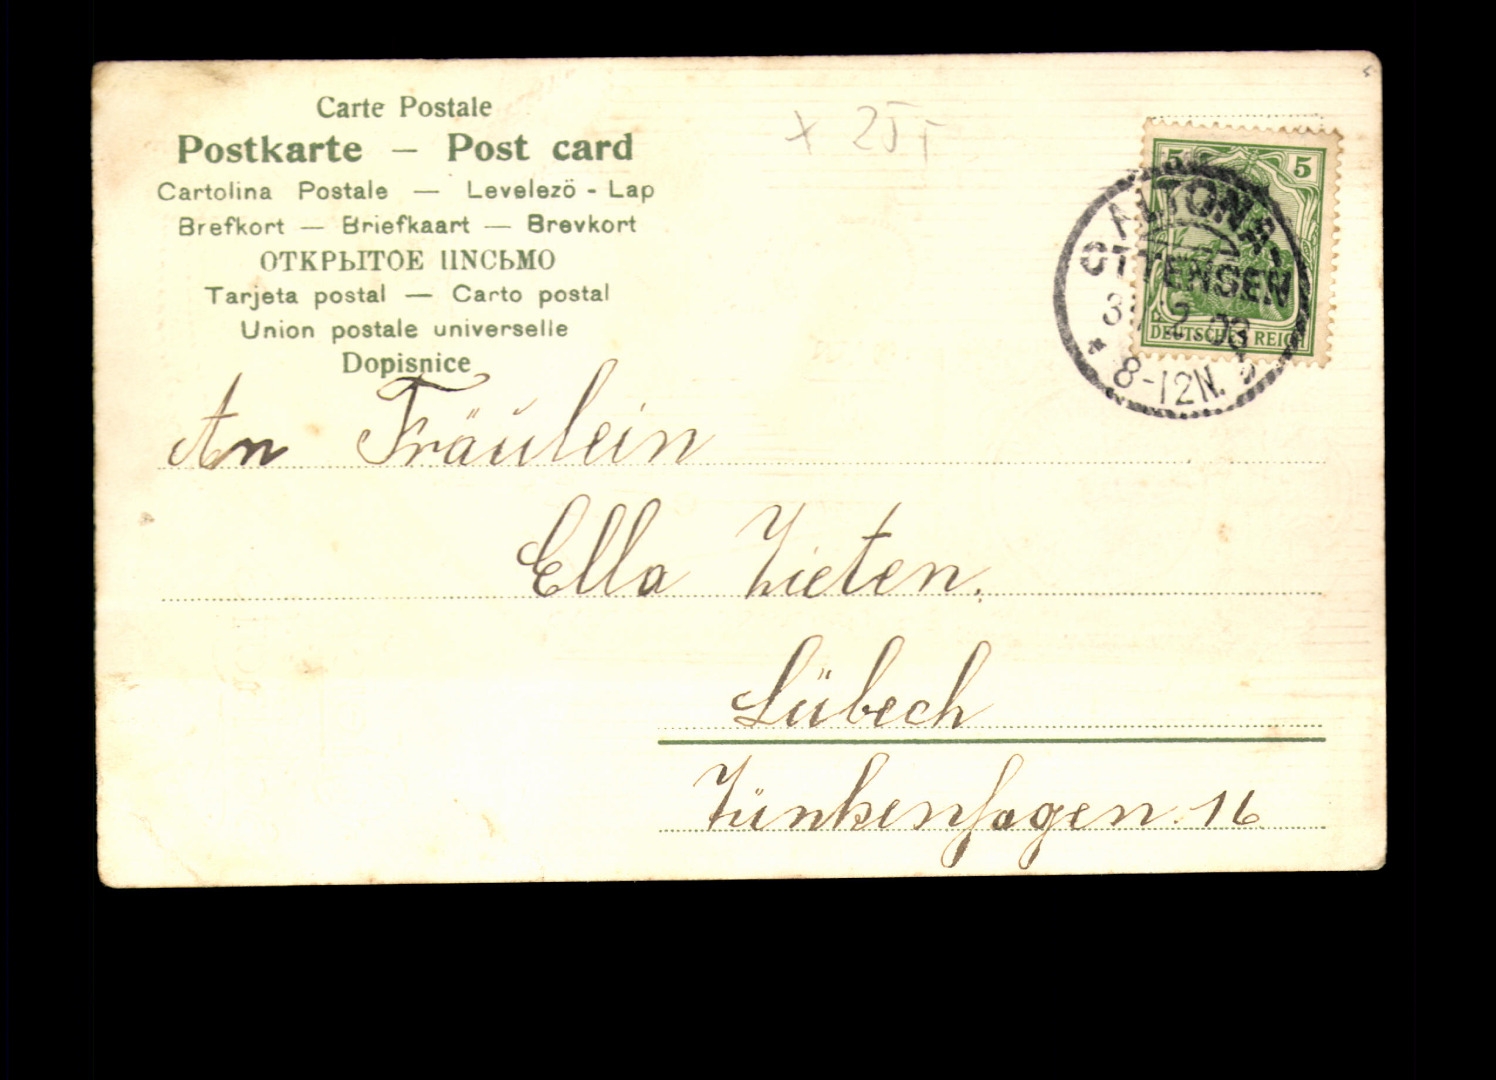 Carte Postale
Postkarte — Post card
Cartolina Postale — Levelezö - Lap
Brefkort — Briefkaart — Brevkort
ОТКРЫТОЕ ПИСЬМО
Tarjeta postal — Carto postal
Union postale universelle
Dopisnice
5 5
DEUTSCHES REICH
ALTONA
OTTENSEN
* 8-12N.
An Fräulein
Ella Zieten.
Lübech
Hünkenhagen. 16